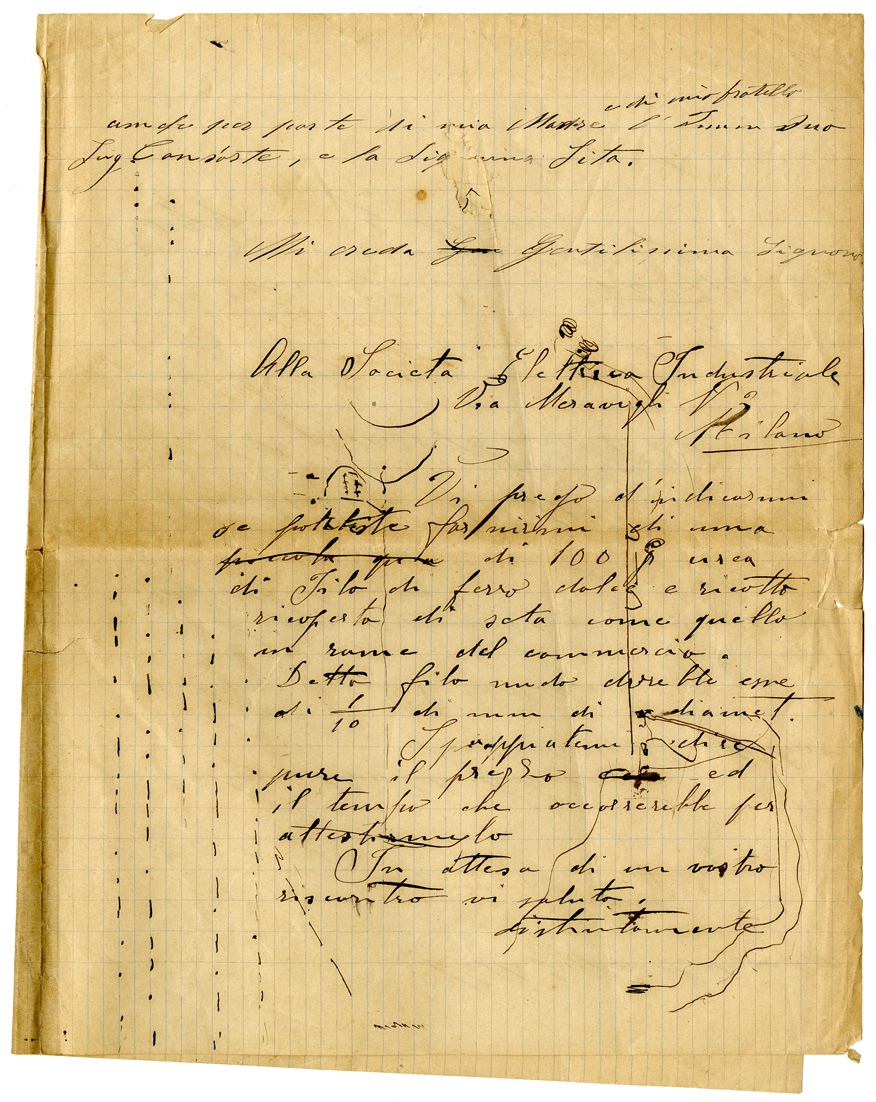 e di mio fratello
anche per parte di mia Madre l'
Consorte, e la Sita.
5
Mi creda Gentilissima Signora
Alla Società Elettrica Industriale
Via Meravigli N°
Milano
Vi prego d'indicarmi
se potreste fornirmi di una
piccola qua di 100 g circa
di Filo di ferro dolce e ricotto
ricoperto di seta come quello
in rame del commercio.
Detto filo nudo dovrebbe esse
di 1/10 di mm di diamet.
dire
pure il prezzo ed
il tempo che occorrerebbe per
allestirmelo
In attesa di un vostro
riscontro vi saluto.
distintamente